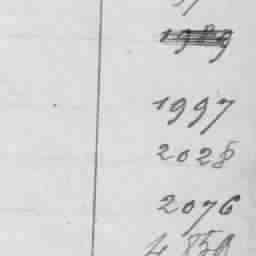 1989
1997
2028
2076